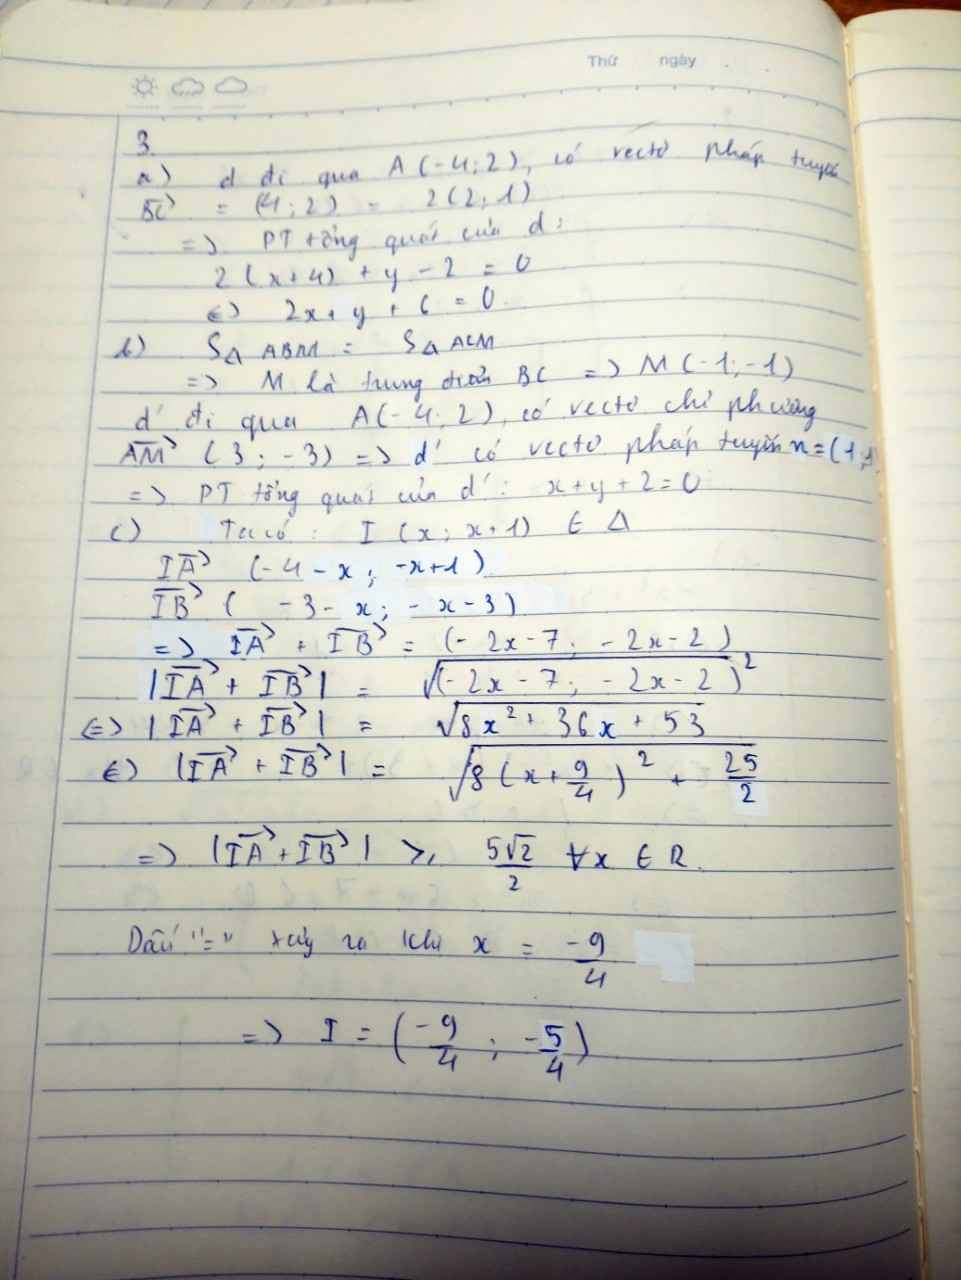 Thứ ngày
3.
a) d đi qua A(-4;2), có vectơ pháp tuyến
BC→ = (4;2) = 2(2;1)
=> PT tổng quát của d:
2(x+4) + y - 2 = 0
<=> 2x + y + 6 = 0.
b) SΔ ABM = SΔ ACM
=> M là trung điểm BC => M(-1;-1)
d' đi qua A(-4;2), có vectơ chỉ phương
AM→ (3;-3) => d' có vectơ pháp tuyến n=(1;1)
=> PT tổng quát của d': x+y+2=0
c) Ta có: I (x; x+1) ∈ Δ
IA→ (-4-x; -x+1)
IB→ (-3-x; -x-3)
=> IA→ + IB→ = (-2x-7; -2x-2)
|IA→ + IB→| = √(-2x-7; -2x-2)²
<=> |IA→ + IB→| = √8x² + 36x + 53
<=> |IA→ + IB→| = √8(x+9/4)² + 25/2
=> |IA→ + IB→| ≥ 5√2/2 ∀x ∈ R.
Dấu "=" xảy ra khi x = -9/4
=> I = (-9/4; -5/4)